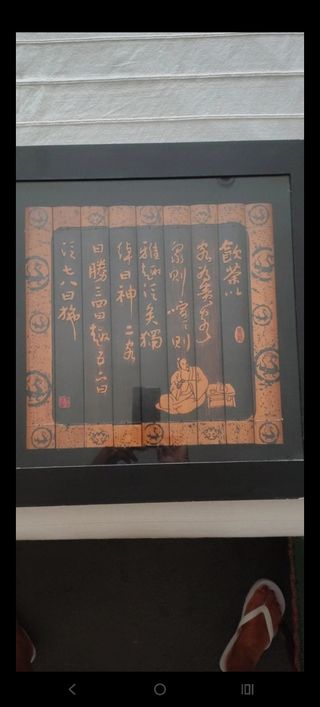 飲茶以
客少為貴客
眾則喧喧則
雅趣泛矣獨
啜曰神二客
曰勝三四曰趣五六曰
泛七八曰施